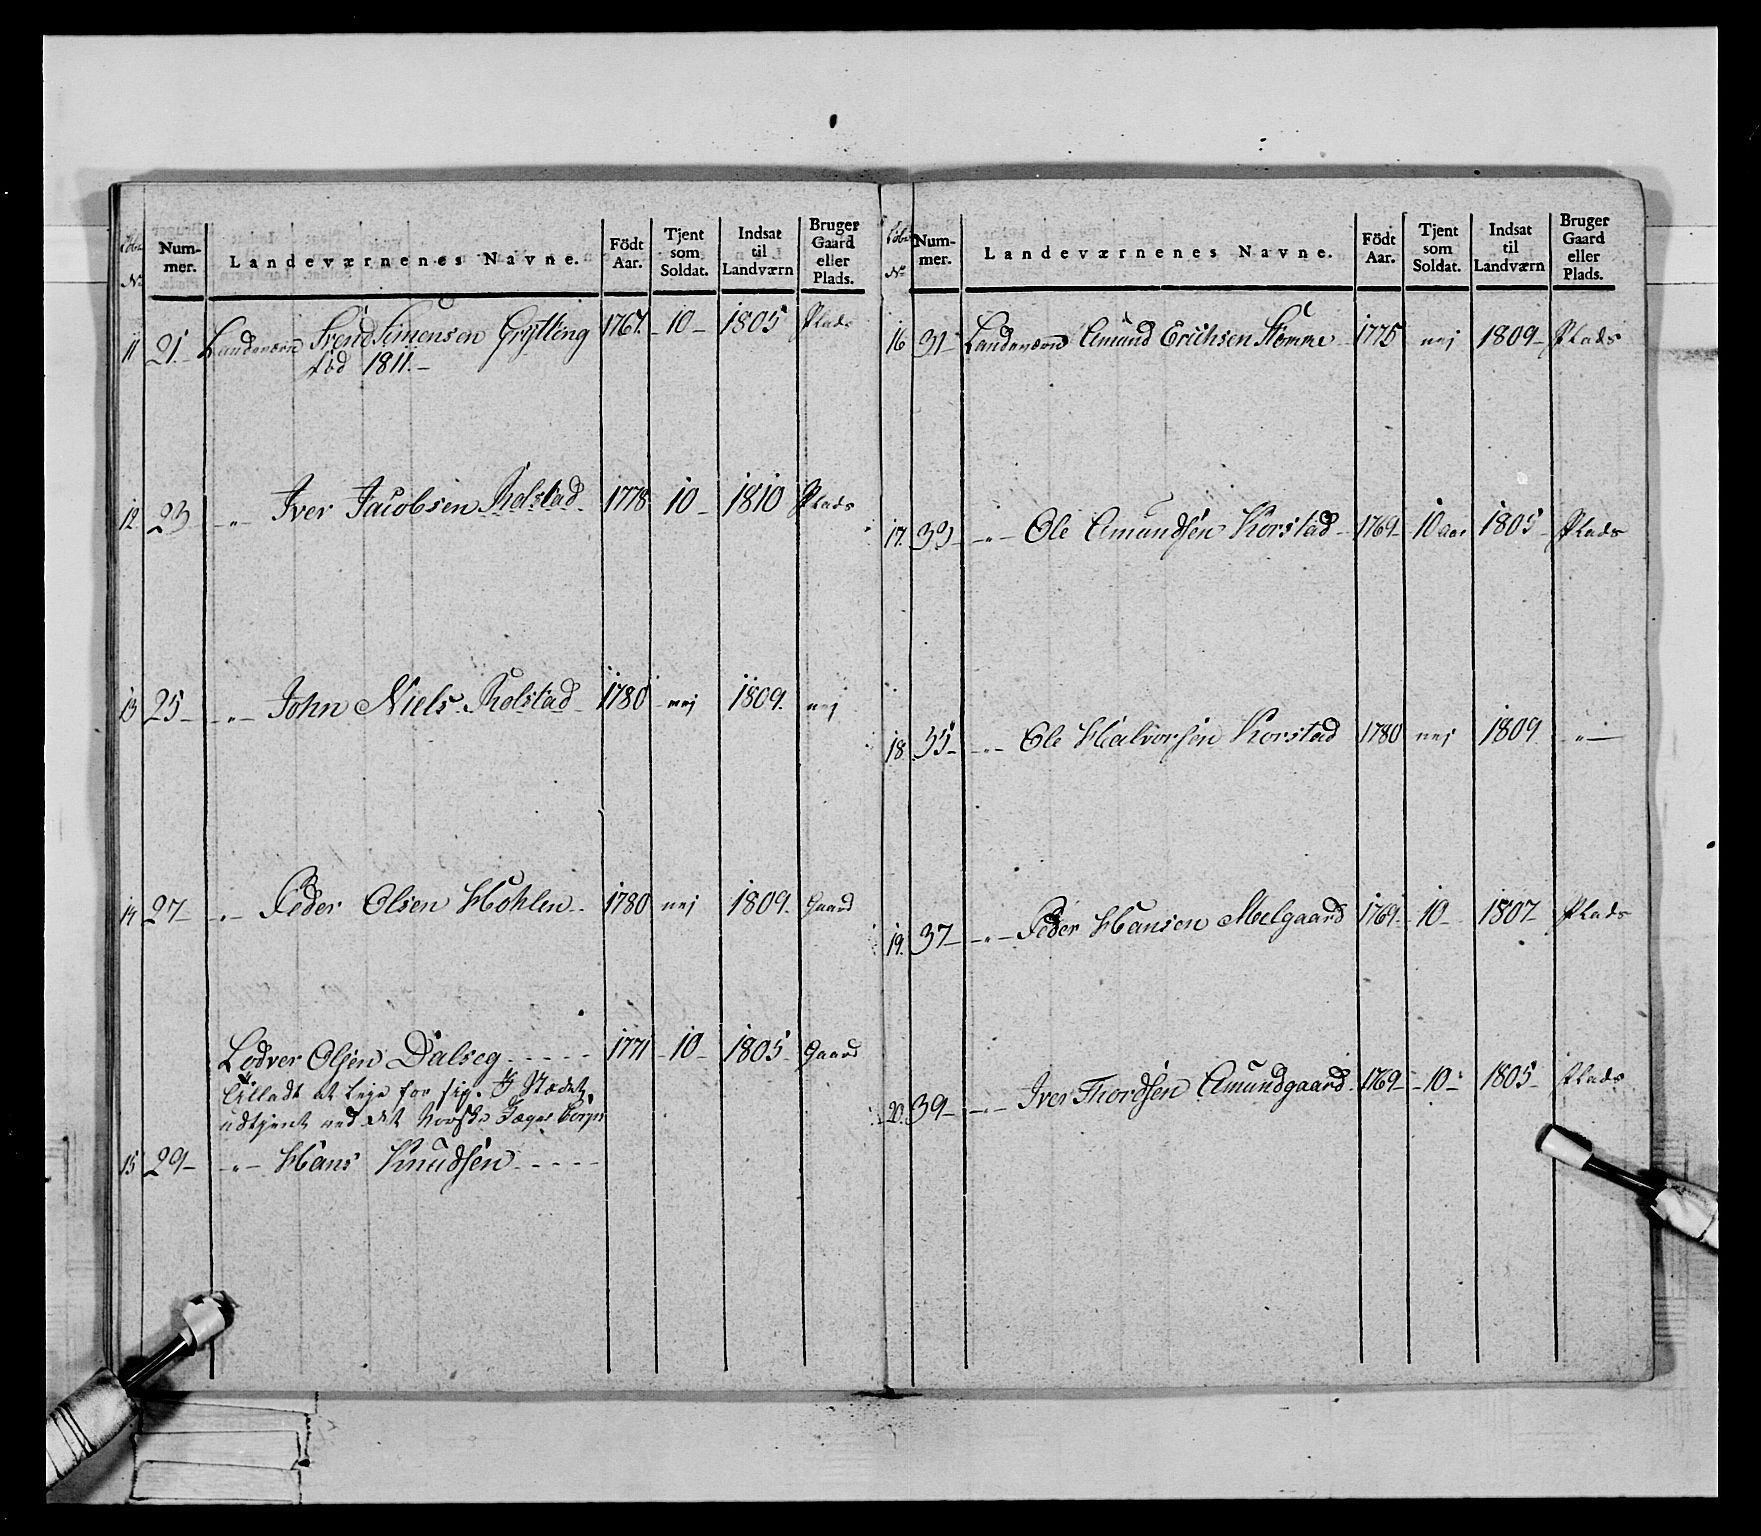 Löbe No. Nummer. Landeværnenes Navne. Födt Aar. Tjent som Soldat. Indsat til Landværn Bruger Gaard eller Plads.
11 21. Landeværn Svend Simensen Grytting 1767. 10 1805 Plads
död 1811.
12 23 „ Iver Jacobsen Kolstad 1778 10 1810 Plads
13 25 „ John Niels. Kolstad 1780 nej 1809. nej
14 27 „ Peder Olsen Hohlen 1780 nej 1809. Gaard
Lodver Olsen Dalseg 1771 10 1805 Gaard
tilladt at leje for sig. I Stædet
udtjent ved det Norske Jæger Corps
15 29 „ Hans Knudsen
Löbe No. Nummer. Landeværnenes Navne. Födt Aar. Tjent som Soldat. Indsat til Landværn Bruger Gaard eller Plads.
16 31 Landeværn Amund Erichsen Stömne 1775 nej 1809 Plads
17. 33 „ Ole Amundsen Korstad 1769 10 aar 1805 Plads
18 35 „ Ole Halvorsen Korstad 1780 nej 1809 „
19. 37 „ Peder Hansen Melgaard 1769 10 1807 Plads
20. 39 „ Iver Thordsen Amundgaard 1769 10 1805 Plads